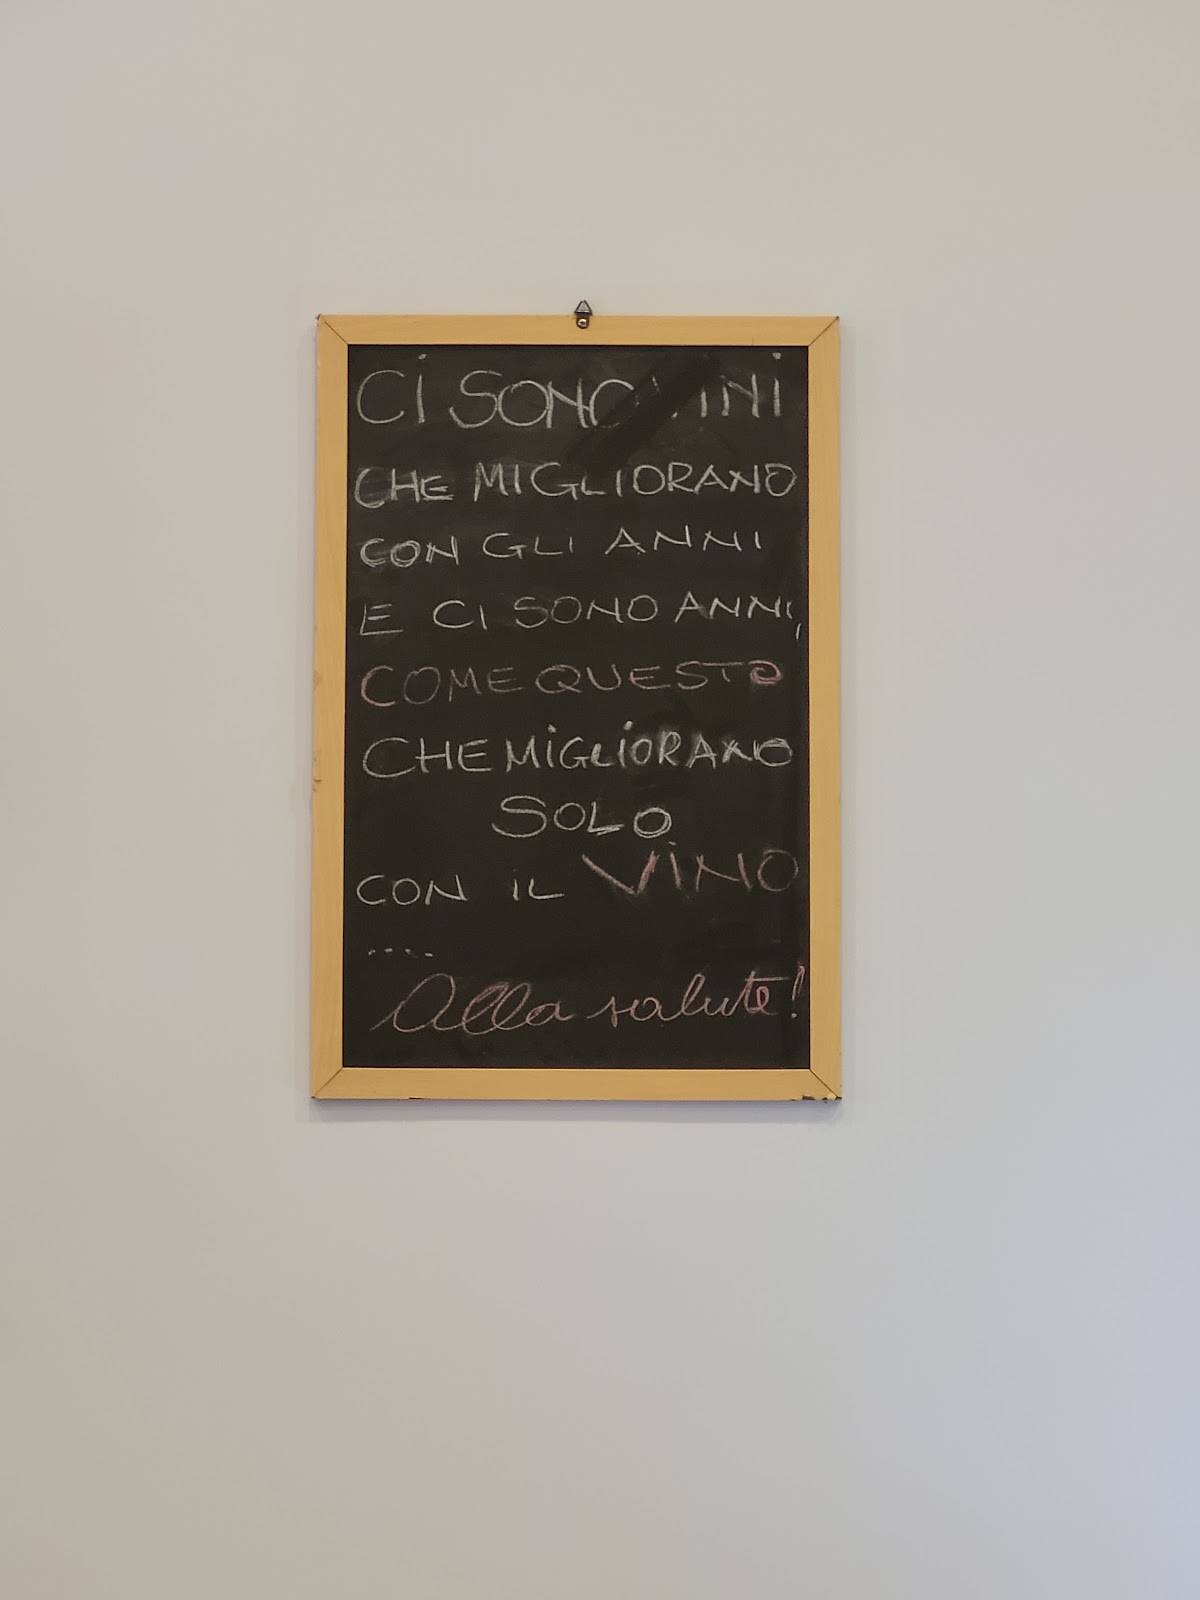 CI SONO VINI
CHE MIGLIORANO
CON GLI ANNI
E CI SONO ANNI,
COME QUESTO
CHE MIGLIORANO
SOLO
CON IL VINO
....
Alla salute!